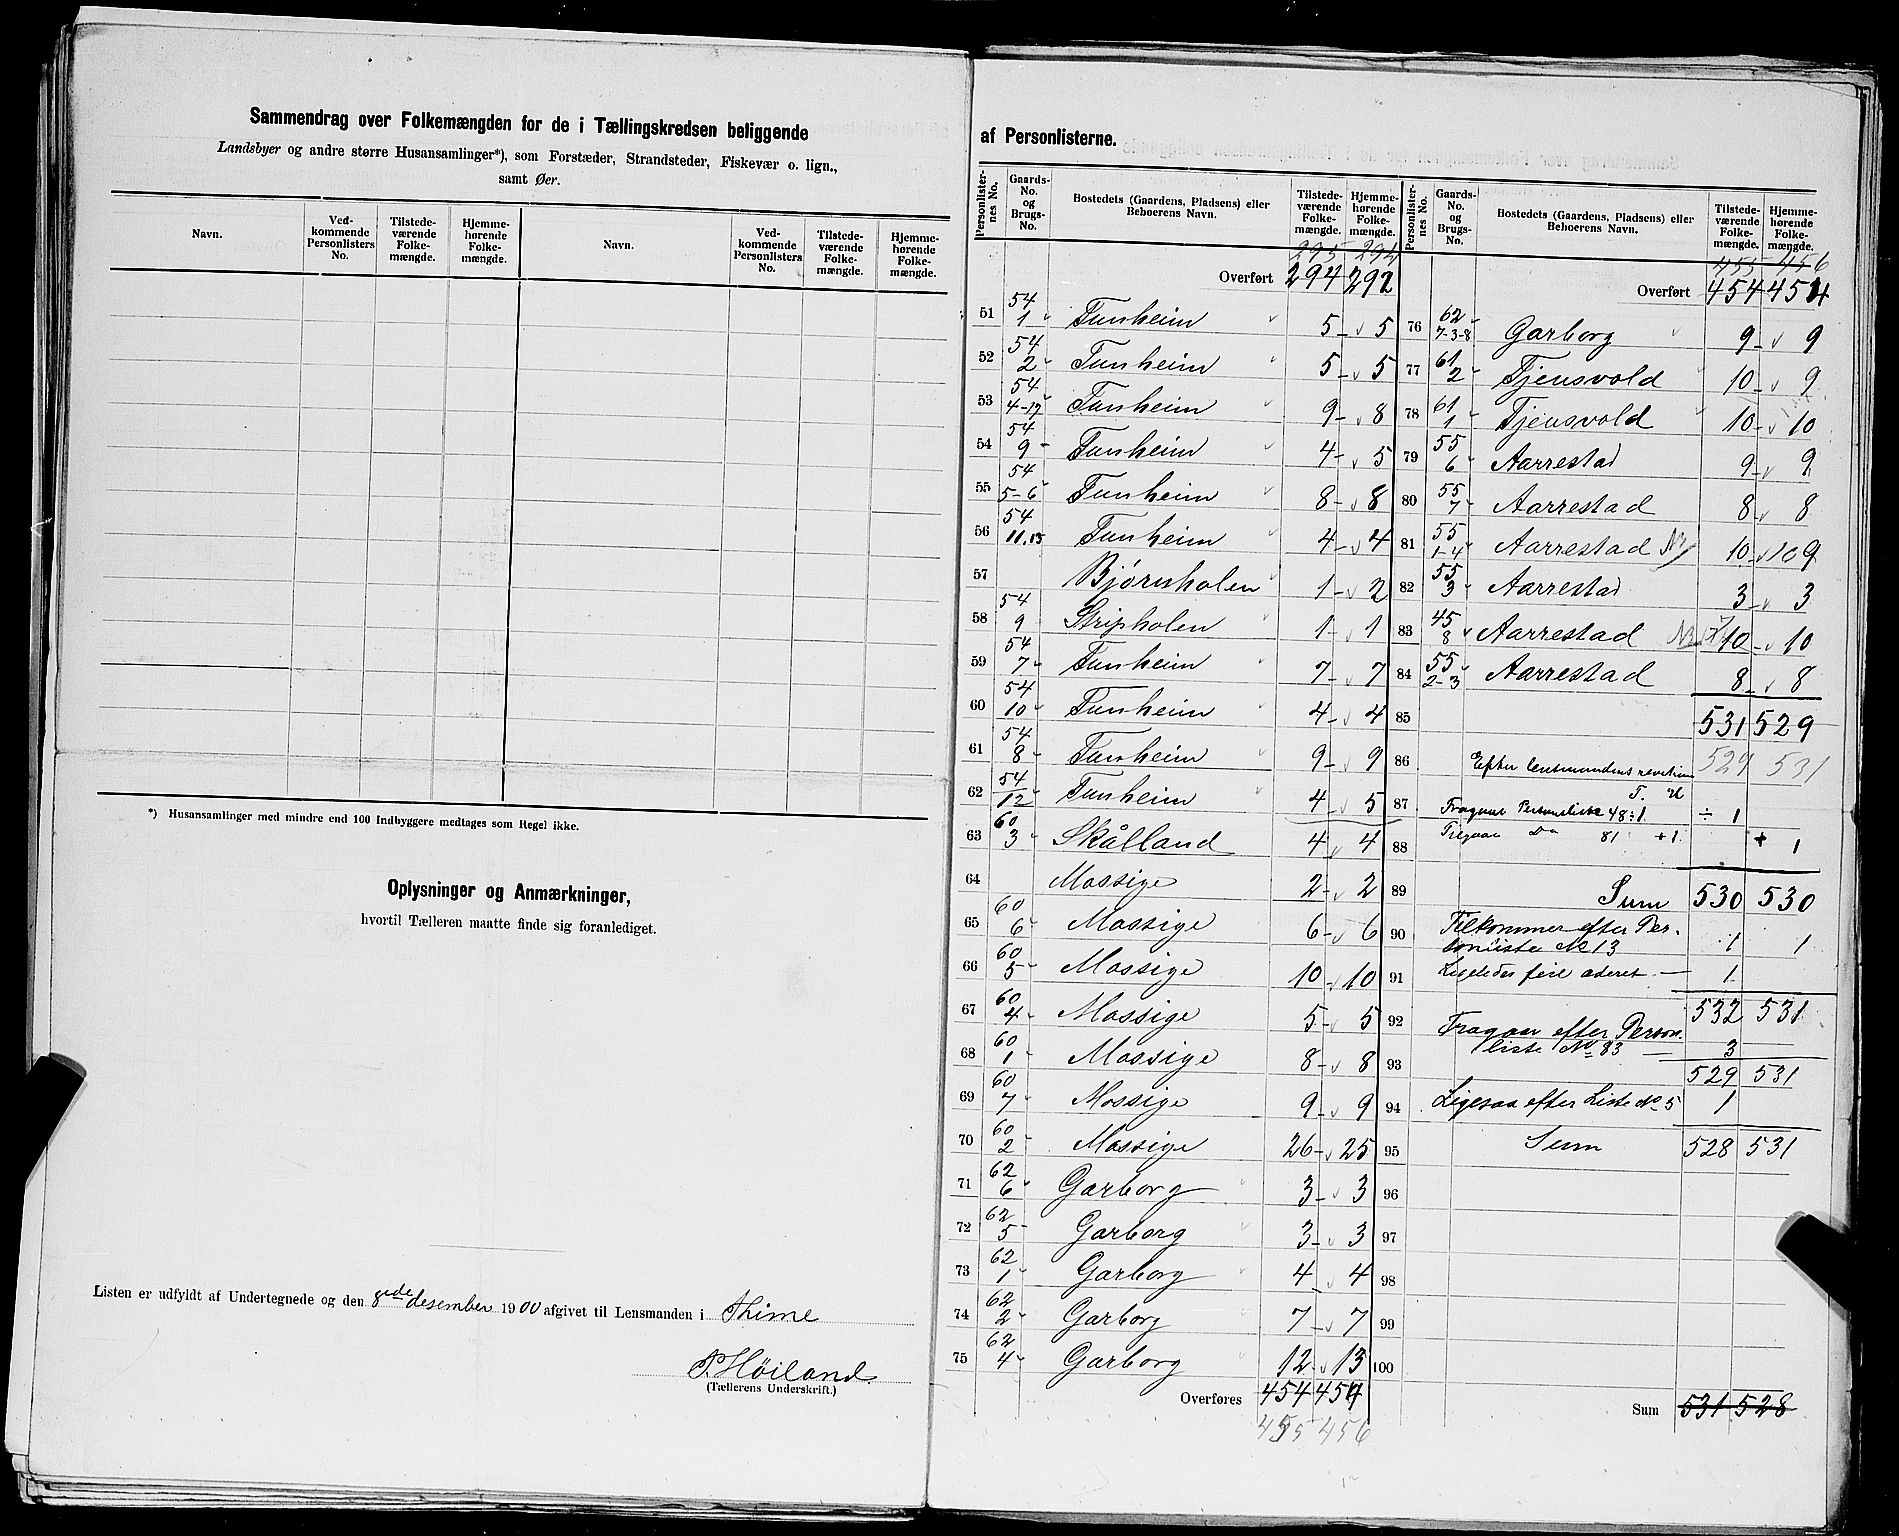 Sammendrag over Folkemængden for de i Tællingskredsen beliggende
Landsbyer og andre større Husansamlinger*), som Forstæder, Strandsteder, Fiskevær o. lign.,
samt Øer.
Navn. Vedkommende Personlisters No. Tilstedeværende Folkemængde. Hjemmehørende Folkemængde. Navn. Vedkommende Personlisters No. Tilstedeværende Folkemængde. Hjemmehørende Folkemængde.
*) Husansamlinger med mindre end 100 Indbyggere medtages som Regel ikke.
Oplysninger og Anmærkninger,
hvortil Tælleren maatte finde sig foranlediget.
Listen er udfyldt af Undertegnede og den 8de desember 1900 afgivet til Lensmanden i Thime
Høiland
(Tællerens Underskrift.)
af Personlisterne.
Personlisternes No. Gaards-No. og Brugs-No. Bostedets (Gaardens, Pladsens) eller Beboerens Navn. Tilstedeværende Folkemængde. Hjemmehørende Folkemængde.
295 292
Overført 294 292
51 54 1 Tunheim 5 5
52 54 2 Tunheim 5 5
53 54 4-17 Tunheim 9 8
54 54 9 Tunheim 4 5
55 54 5-6 Tunheim 8 8
56 54 11.15 Tunheim 4 4
57 Bjørnholen 1 2
58 54 9 Stripholen 1 1
59 54 7 Tunheim 7 7
60 54 10 Tunheim 4 4
61 54 8 Tunheim 9 9
62 54 12 Tunheim 4 5
63 60 3 Skålland 4 4
64 Mossige 2 2
65 60 6 Mossige 6 6
66 60 5 Mossige 10 10
67 60 4 Mossige 5 5
68 60 1 Mossige 8 8
69 60 7 Mossige 9 9
70 60 2 Mossige 26 25
71 62 6 Garborg 3 3
72 62 5 Garborg 3 3
73 62 1 Garborg 4 4
74 62 2 Garborg 7 7
75 62 4 Garborg 12 13
Overføres 454 454
455 456
Personlisternes No. Gaards-No. og Brugs-No. Bostedets (Gaardens, Pladsens) eller Beboerens Navn. Tilstedeværende Folkemængde. Hjemmehørende Folkemængde.
455 456
Overført 454 454
76 62 7-3-8 Garborg 9 9
77 61 2 Tjensvold 10 9
78 61 1 Tjensvold 10 10
79 55 6 Aarrestad 9 9
80 55 7 Aarrestad 8 8
81 55 1-4 Aarrestad 10 10 9
82 55 3 Aarrestad 3 3
83 45 8 Aarrestad 7 10 10
84 55 2-3 Aarrestad 8 8
85 531 529
86 Efter lensmandens revision 529 531
T. H
87 Fragaar Personliste 48 ÷1 ÷ 1
88 Tilgaar Do 81 +1. + 1
89 Sum 530 530
90 Tilkommer efter Personliste No 13 1 1
91 Ligeledes feil aderet 1
92 532 531
Fragaar efter Person
93 liste No 83 3
529 531
94 Ligesaa efter Liste No 5 1
95 Sum 528 531
96
97
98
99
100
Sum 531 528